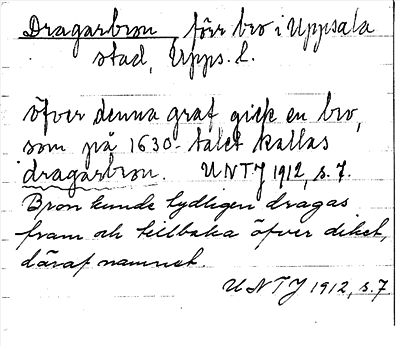 Dragarbron, förr bro i Uppsala
stad, Upps. l.
öfver denna graf gick en bro,
som på 1630-talet kallas
dragarbron. UNTJ 1912, s. 7.
Bron kunde tydligen dragas
fram och tillbaka öfver diket,
däraf namnet.
UNTJ 1912, s. 7